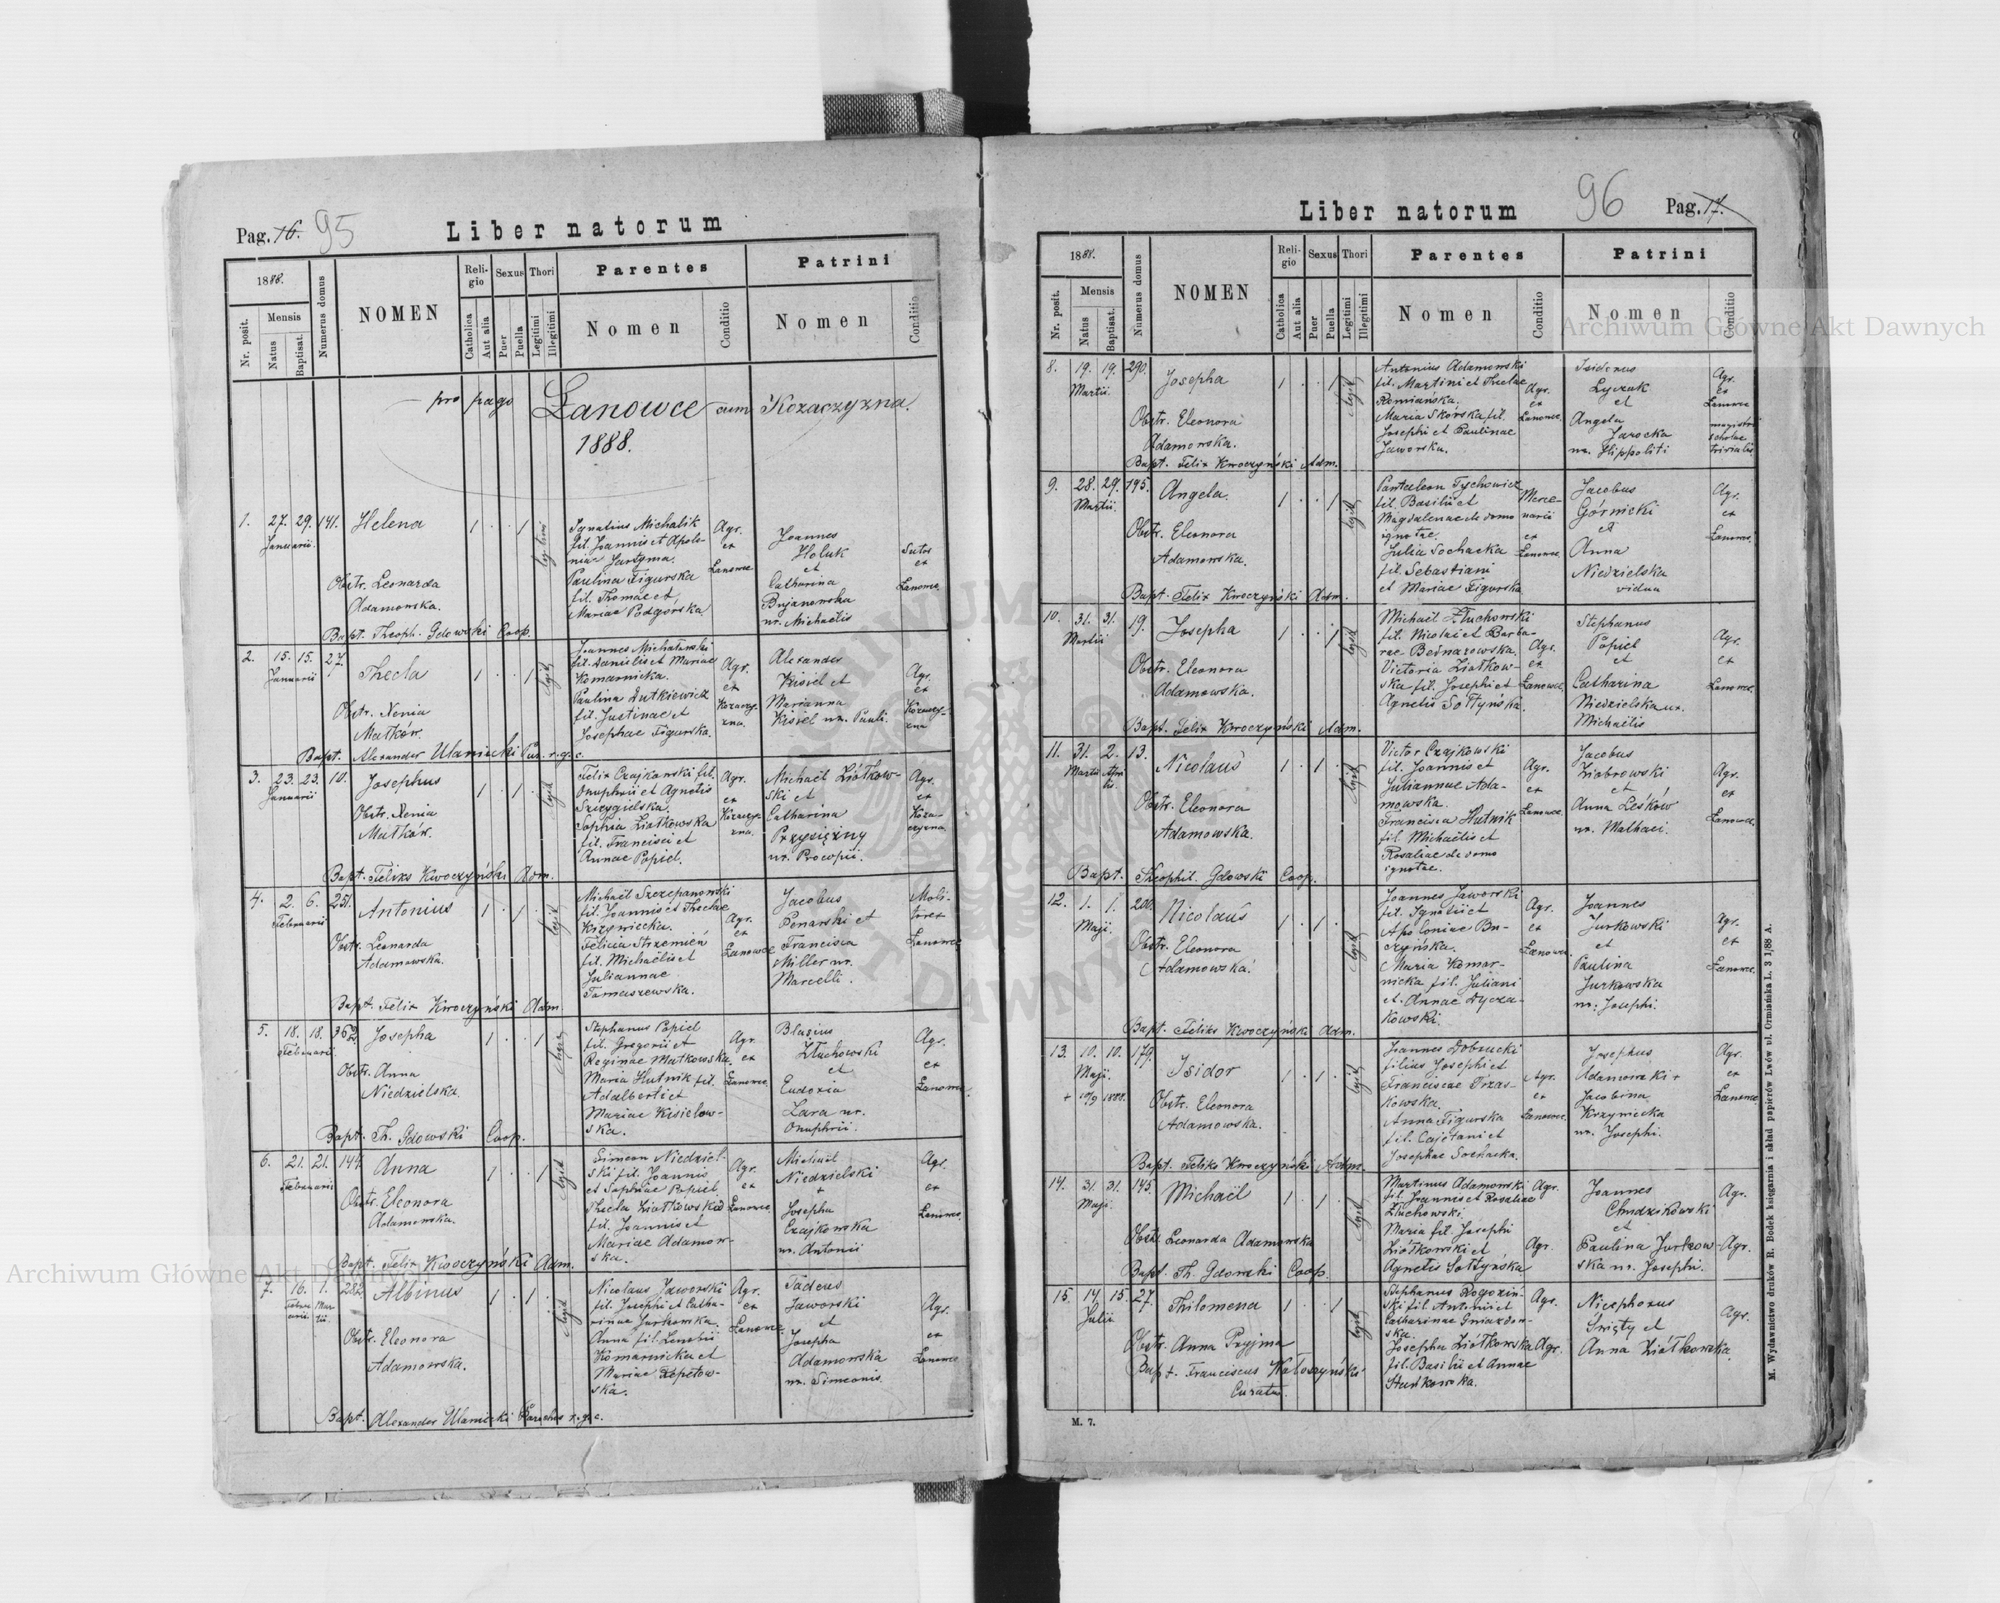 Pag. 16. 95
Liber natorum
1888.
Numerus domus
NOMEN
Religio
Sexus
Thori
Parentes
Patrini
Nr. posit.
Mensis
Natus
Baptisat.
Catholica
Aut alia
Puer
Puella
Legitimi
Illegitimi
Nomen
Conditio
Nomen
Conditio
pro pago Łanowce cum Kozaczyzna.
1888.
1. 27. 29. 141. Helena 1 . . 1
Januarii.
Ignatius Michalik
fil. Joannis et Apolo-
niae Jartyma.
Paulina Figurska
fil. Thomae et
Mariae Podgórska
Agr.
ex
Łanowce
Joannes
Holuk
et
Catharina
Bujanowska
ur. Michaelis
Sutor
ex
Łanowce.
Obstr. Leonarda
Adamowska.
Bapt. Theoph. Gdowski Coop.
2. 15. 15. 27. Thecla 1 . . 1 legit.
Januarii
Joannes Michałowski
fil. Danielis et Mariae
Komarnicka.
Paulina Dutkiewicz
fil. Justinae et
Josephae Figurska.
Agr.
ex
Kozaczy-
zna.
Alexander
Kisiel et
Marianna
Kisiel ur. Pauli.
Agr.
ex
Kozaczy-
zna
Obstr. Xenia
Małków.
Bapt. Alexander Ulanicki Par. r. g. c.
3. 23. 23. 10. Josephus 1 . 1 . legit
Januarii
Felix Czajkowski fil.
Onuphrii et Agnetis
Szczygielska.
Sophia Ziółkowska
fil. Francisci et
Annae Popiel.
Agr.
ex
Kozaczy-
zna.
Michaël Ziółkow-
ski et
Catharina
Przysiężny
ur. Procopii.
Agr.
ex
Koza-
czyzna.
Obstr. Xenia
Małków.
Bapt. Feliks Kwoczyński Adm.
4. 2. 6. 251. Antonius 1 . 1 . legit
Februarii
Michaël Szczepanowski
fil. Joannis et Theclae
Krzywiecka.
Felicia Strzemień
fil. Michaëlis et
Juliannae
Tomaszewska.
Agr.
ex
Łanowce
Jacobus
Penarski et
Francisca
Miller ur.
Marcelli.
Moli-
tor ex
Łanowce
Obstr. Leonarda
Adamowska.
Bapt. Felix Kwoczyński Adm.
5. 18. 18. 362. Josepha 1 . . 1 legit
Februarii
Stephanus Popiel
fil. Gregorii et
Reginae Mutkowska.
Maria Hutnik fil.
Adalberti et
Mariae Kisielow-
ska.
Agr.
ex
Łanowce.
Blasius
Złuchowski
et
Eudoxia
Lara ur.
Onuphrii.
Agr.
ex
Łanowce
Obstr. Anna
Niedzielska.
Bapt. Th. Gdowski Coop.
6. 21. 21. 144. Anna 1 . . 1 legit
Februarii
Simeon Niedziel-
ski fil. Joannis
et Sophiae Popiel
Thecla Ziółkowska
fil. Joannis et
Mariae Adamow-
ska.
Agr.
ex
Łanowce
Michaël
Niedzielski
+
Josepha
Czajkowska
ur. Antonii
Agr.
ex
Łanowce.
Obstr. Eleonora
Adamowska.
Bapt. Felix Kwoczyński Adm.
7. 16. 1. 282. Albinus 1 . 1 . legit
Nicolaus Jaworski
fil. Josephi et Catha-
rinae Jurkowska.
Anna fil. Leontii
Komarnicka et
Mariae Repetow-
ska.
Agr.
ex
Łanowce.
Tadeus
Jaworski
et
Josepha
Adamowska
ur. Simeonis.
Agr.
ex
Łanowce
Obstr. Eleonora
Adamowska.
Bapt. Alexander Ulanicki Parochus r. g. c.
Liber natorum
96 Pag. 17.
1888.
Numerus domus
NOMEN
Religio
Sexus
Thori
Parentes
Patrini
Nr. posit.
Mensis
Natus
Baptisat.
Catholica
Aut alia
Puer
Puella
Legitimi
Illegitimi
Nomen
Conditio
Nomen
Conditio
8. 19. 19. 290. Josepha 1 . . 1 legit
Martii.
Antonius Adamowski
fil. Martini et Theclae
Romiańska.
Maria Skórska fil.
Josephi et Paulinae
Jaworska.
Agr.
ex
Łanowce.
Isidorus
Łyczuk
et
Angela
Jarocka
ur. Hippoliti
Agr.
ex
Łanowce
magistri
scholae
trivialis
Obstr. Eleonora
Adamowska.
Bapt. Felix Kwoczyński Adm.
9. 28. 29. 195. Angela. 1 . . 1 legit
Martii.
Pantaleon Tychowicz
fil. Basilii et
Magdalenae de domo
ignotae.
Julia Sochacka
fil. Sebastiani
et Mariae Figurska
Merce-
narii
ex
Łanowce.
Jacobus
Górnicki
et
Anna
Niedzielska
vidua
Agr.
ex
Łanowce.
Obstr. Eleonora
Adamowska.
Bapt. Felix Kwoczyński Adm.
10. 31. 31. 19. Josepha 1 . . 1 legit
Martii
Michaël Złuchowski
fil. Nicolai et Barba-
rae Bednarowska.
Victoria Ziółkow-
ska fil. Josephi et
Agnetis Sołtyńska.
Agr.
ex
Łanowce.
Stephanus
Popiel
et
Catharina
Niedzielska ur.
Michaëlis
Agr.
ex
Łanowce.
Obstr. Eleonora
Adamowska.
Bapt. Felix Kwoczyński Adm.
11. 31. 2. 13. Nicolaus 1 . 1 . legit
Martii Apri-
lis.
Victor Czajkowski
fil. Joannis et
Juliannae Ada-
mowska.
Francisca Hutnik
fil. Michaëlis et
Rosaliae de domo
ignotae.
Agr.
ex
Łanowce.
Jacobus
Ziobrowski
et
Anna Leśków
ur. Mathaei.
Agr.
ex
Łanowce.
Obstr. Eleonora
Adamowska.
Bapt. Theophil. Gdowski Coop.
12. 1. 1. 200. Nicolaus 1 . 1 . legit
Maji.
Joannes Jaworski
fil. Ignatii et
Apoloniae Bu-
czyńska.
Maria Komar-
nicka fil. Juliani
et Annae Dycza-
kowski.
Agr.
ex
Łanowce.
Joannes
Jurkowski
et
Paulina
Jurkowska
ur. Josephi.
Agr.
ex
Łanowce.
Obstr. Eleonora
Adamowska.
Bapt. Feliks Kwoczyński Adm.
13. 10. 10. 179. Isidor 1 . 1 . legit
Maji.
+ 10/9 1888.
Joannes Dobrucki
filius Josephi et
Franciscae Trzas-
kowska.
Anna Figurska
fil. Cajetani et
Josephae Sochacka.
Agr.
ex
Łanowce.
Josephus
Adamowski +
Jacobina
Krzywiecka
ur. Josephi.
Agr.
ex
Łanowce.
Obstr. Eleonora
Adamowska.
Bapt. Feliks Kwoczyński Adm.
14. 31. 31. 145. Michaël 1 . 1 . legit
Maji
Martinus Adamowski
fil. Joannis et Rosaliae
Złuchowski.
Maria fil. Josephi
Ziółkowski et
Agnetis Sołtyńska
Agr.
Agr.
Joannes
Chudzikowski
et
Paulina Jurkow-
ska ur. Josephi.
Agr.
Agr.
Obstr. Leonarda Adamowska
Bapt. Th. Gdowski Coop.
15. 14. 15. 27. Philomena 1 . . 1 legit
Julii
Stephanus Rogoziń-
ski fil. Antonii et
Catharinae Gniazdow-
ska.
Josepha Ziółkowska
fil. Basilii et Annae
Stańkowska.
Agr.
Agr.
Nicephorus
Święty et
Anna Ziółkowska
Agr.
Obstr. Anna Pryjma
Bapt. Franciscus Wałoszyński
Curatus.
M. 7.
M. Wydawnictwo druków R. Bodek księgarnia i skład papierów Lwów ul. Ormiańska L. 3 1/88 A.
Archiwum Główne Akt Dawnych
Archiwum Główne Akt Dawnych